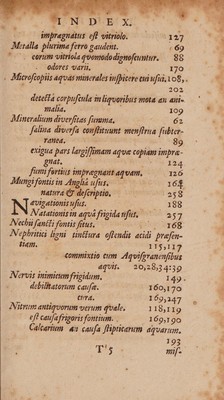 INDEX.
impregnatus est vitriolo. 127
Metalla plurima ferro gaudent. 69
eorum vitriola quomodo dignoscuntur. 88
odores varii. 170
Microscopiis aquas minerales inspicere cui usui. 108,
202
detecta corpuscula in liquoribus mota au ani-
malia. 109
Mineralium diversitas summa. 62
salina diversa constituunt menstrua subter-
ranea. 89
exigua pars largissimam aquæ copiam impræ-
gnat. 124
fumi fortius impregnant aquam. 126
Mungi fontis in Anglia usus. 168
natura & descriptio. 258
NAvigationis usus. 188
Natationis in aquâ frigida usus. 257
Nechii sancti fontis situs. 168
Nephritici ligni tinctura ostendit acidi præsen-
tiam. 115,117
commixtio cum Aquisgranensibus
aquis. 20,28,34,39
Nervis inimicum frigidum. 149
debilitatorum causæ. 160,170
tura. 169,247
Nitrum antiquorum verum quale. 118,119
est causa frigoris fontium. 169,190
Calcarium an causa stipticarum aquarum.
193
T 5 mis-